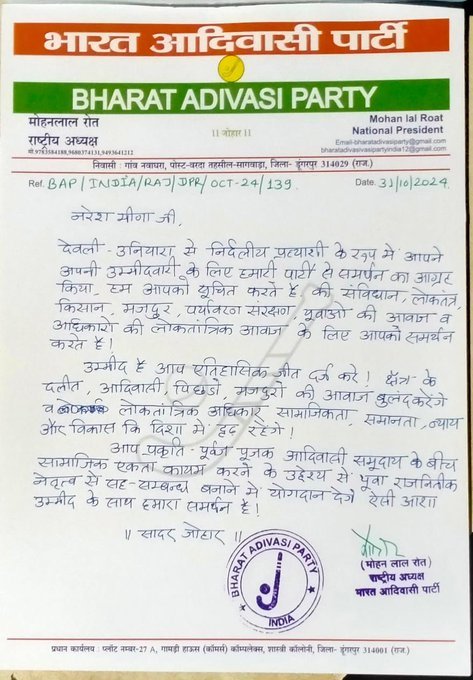 भारत आदिवासी पार्टी
BHARAT ADIVASI PARTY
मोहनलाल रोत
राष्ट्रीय अध्यक्ष
मो.9783584188,9680374131,9493641212
।। जोहार ।।
Mohan lal Roat
National President
Email-bharatadivasiparty@gmail.com
bharatadivasipartyindia12@gmail.com
निवासी : गांव नवाघरा, पोस्ट-वरदा तहसील-सागवाड़ा, जिला- डूंगरपुर 314029 (राज.)
Ref. BAP/INDIA/RAJ/DPR/OCT-24/139. Date. 31/10/2024
नरेश मीणा जी,
देवली - उनियारा से निर्दलीय प्रत्याशी के रूप मे आपने
अपनी उम्मीदवारी के लिए हमारी पार्टी से समर्थन का आग्रह
किया, हम आपको सूचित करते है की संविधान, लोकतंत्र,
किसान, मजदुर, पर्यावरण संरक्षण, युवाओ की आवाज व
अधिकारों की लोकतांत्रिक आवाज के लिए आपको समर्थन
करते है!
उम्मीद है आप ऐतिहासिक जीत दर्ज करे! क्षेत्र के
दलीत, आदिवासी, पिछडो, मजदुरों की आवाज बुलंद करेंगे
व लोकतांत्रिक अधिकार सामाजिकता, समानता, न्याय
और विकास कि दिशा मे दृढ रहेंगे!
आप प्रकृति - पूर्वज पूजक आदिवासी समुदाय के बीच
सामाजिक एकता कायम करने के उद्देश्य से युवा राजनितीक
नेतृत्व से सह-सम्बन्ध बनाने मे योगदान देगे ऐसी आशा
उम्मीद के साथ हमारा समर्थन है!
॥ सादर जोहार ॥
BHARAT ADIVASI PARTY
INDIA
(मोहन लाल रोत)
राष्ट्रीय अध्यक्ष
भारत आदिवासी पार्टी
प्रधान कार्यालय : प्लॉट नम्बर-27 A, गामड़ी हाऊस (कॉमर्स) कॉम्पलेक्स, शास्त्री कॉलोनी, जिला- डूंगरपुर 314001 (राज.)